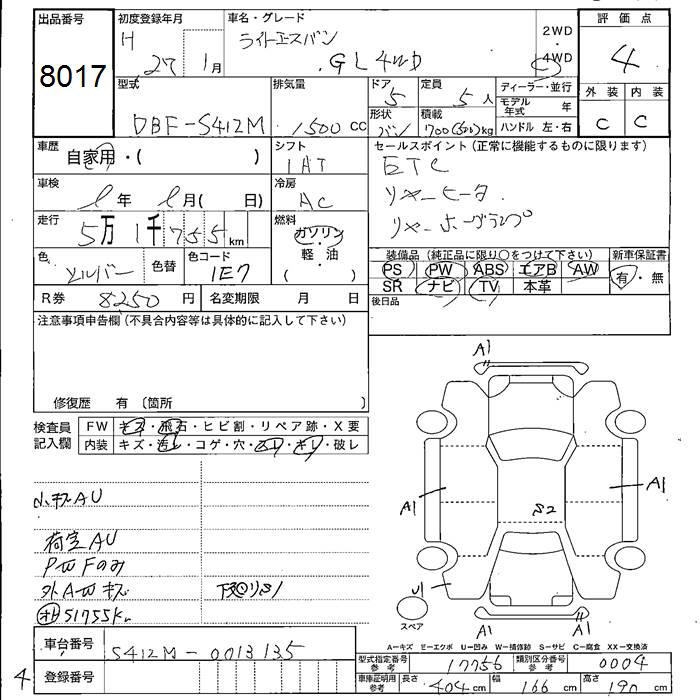 出品番号 8017
初度登録年月 H 27年 1月
車名・グレード ライトエースバン GL 4WD
2WD
4WD
評価点 4
外装 C
内装 C
型式 DBF-S412M
排気量 1500 cc
ドア 5
形状 バン
定員 5 人
積載 700(500)kg
ディーラー・並行
モデル年式 年
ハンドル 左・右
車歴 自家用・( )
シフト IAT
セールスポイント(正常に機能するものに限ります)
ETC
リヤーヒータ
リヤーホーグランプ
車検 年 月( 日)
冷房 AC
走行 5万1千755km
燃料 ガソリン・軽・油 ( )
色 シルバー
色替
色コード 1E7
装備品(純正品に限り○をつけて下さい)
PS PW ABS エアB AW
SR ナビ TV 本革
新車保証書 有・無
後日品
R券 8250 円
名変期限 月 日
注意事項申告欄(不具合内容等は具体的に記入して下さい)
修復歴 有 〔箇所 〕
検査員記入欄
FW キズ・飛石・ヒビ割・リペア跡・X要
内装 キズ・汚レ・コゲ・穴・スレ・キレ・破レ
小キズAU
荷室AU
PWFのみ
外AWキズ
下回りサビ
51755K
A1
A1
A1
S2
U1
A1
A1
スペア
A-キズ E-エクボ U-凹み W-補修跡 S-サビ C-腐食 XX-交換済
車台番号 S412M-0013135
登録番号
4
型式指定番号 参考 17756
類別区分番号 参考 0004
車庫証明用 参考 長さ 404 cm 幅 166 cm 高さ 190 cm